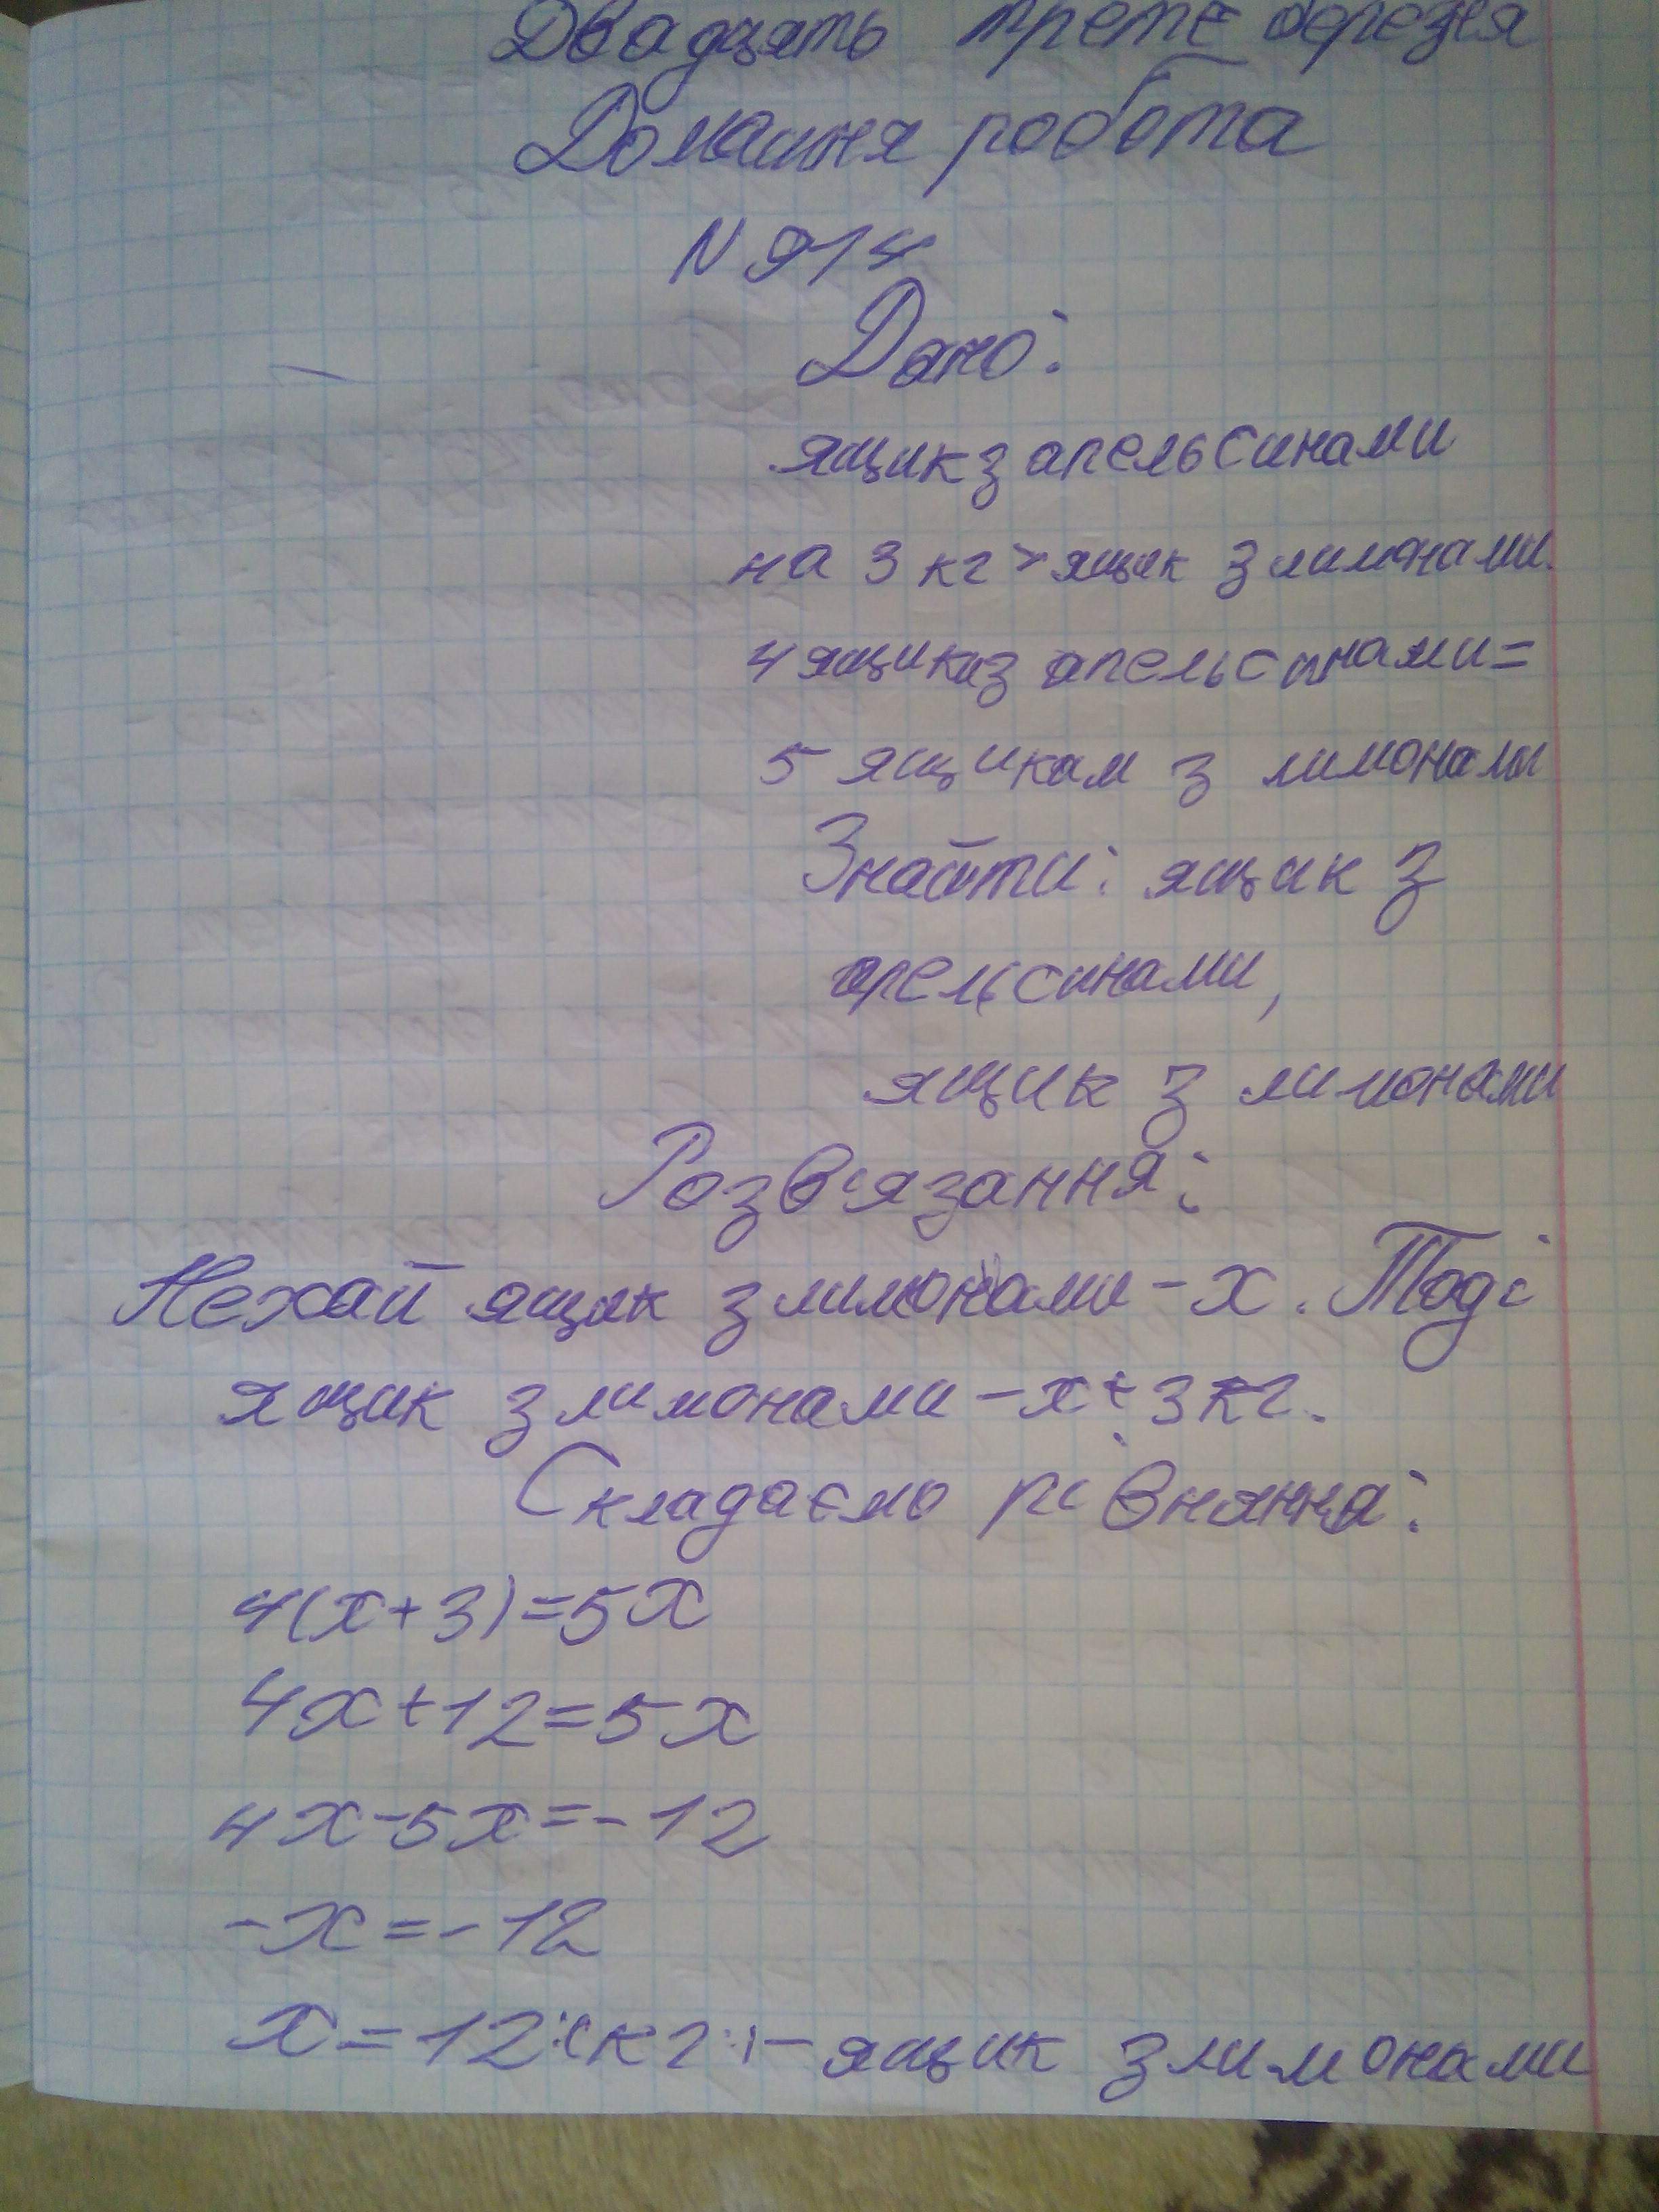 Двадцять третє березня
Домашня робота
N 914
Дано:
ящик з апельсинами
на 3 кг > ящик з лимонами.
4 ящики з апельсинами =
5 ящикам з лимонами
Знайти: ящик з
апельсинами,
ящик з лимонами
Розв'язання:
Нехай ящик з лимонами - x. Тоді
ящик з лимонами - x + 3 кг.
Складаємо рівняння:
4(x+3)=5x
4x+12=5x
4x-5x=-12
-x=-12
x=12 (кг) - ящик з лимонами